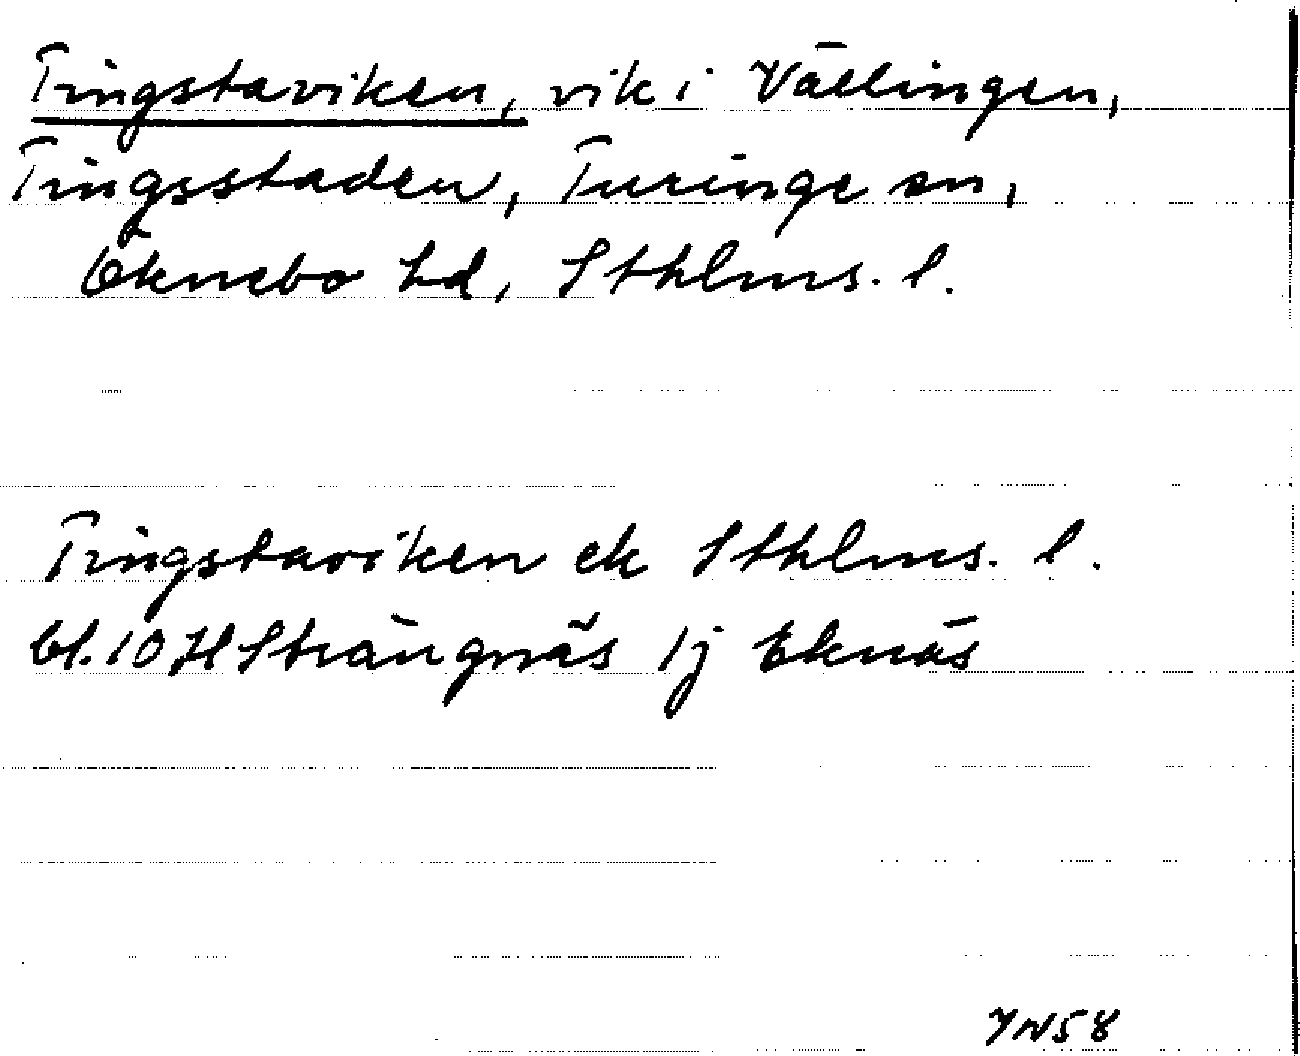 Tingstaviken, vik i Vällingen,
Tingsstaden, Turinge sn,
Öknebo hd, Sthlms. l.
Tingstaviken ek Sthlms. l.
bl. 10 H Strängnäs 1j Eknäs
YN58